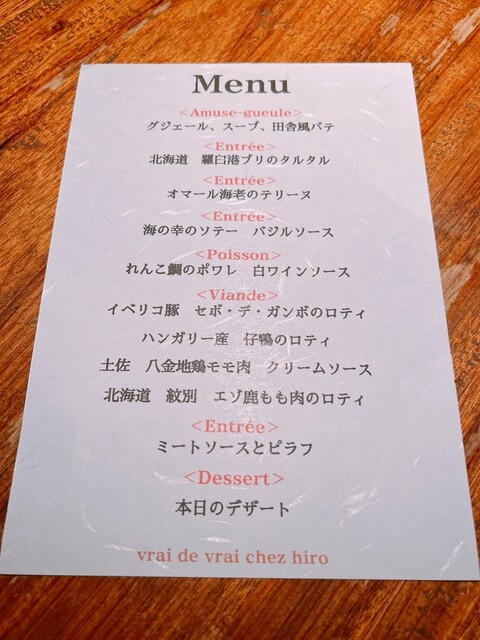 Menu
<Amuse-gueule>
グジェール、スープ、田舎風パテ
<Entrée>
北海道　羅臼港ブリのタルタル
<Entrée>
オマール海老のテリーヌ
<Entrée>
海の幸のソテー　バジルソース
<Poisson>
れんこ鯛のポワレ　白ワインソース
<Viande>
イベリコ豚　セボ・デ・ガンボのロティ
ハンガリー産　仔鴨のロティ
土佐　八金地鶏モモ肉　クリームソース
北海道　紋別　エゾ鹿もも肉のロティ
<Entrée>
ミートソースとピラフ
<Dessert>
本日のデザート
vrai de vrai chez hiro